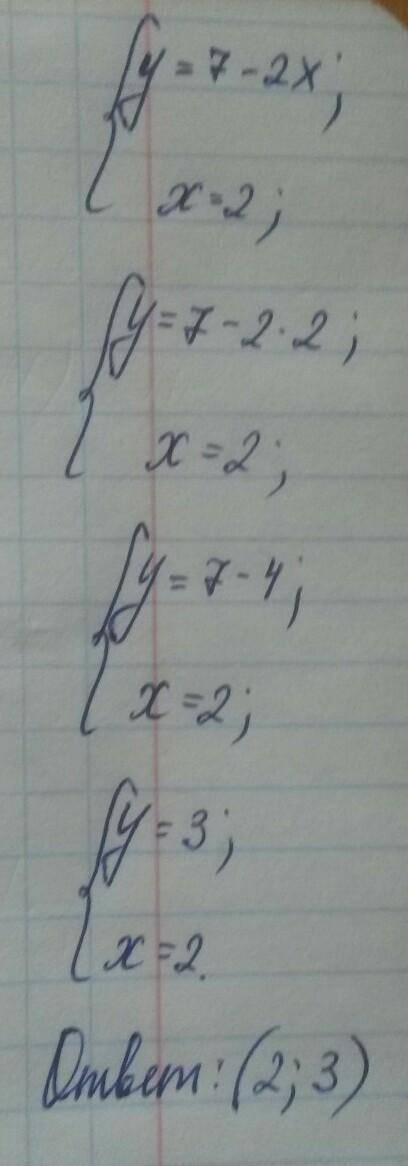 y = 7 - 2x;
x = 2;
y = 7 - 2 · 2;
x = 2;
y = 7 - 4;
x = 2;
y = 3;
x = 2.
Ответ: (2; 3)